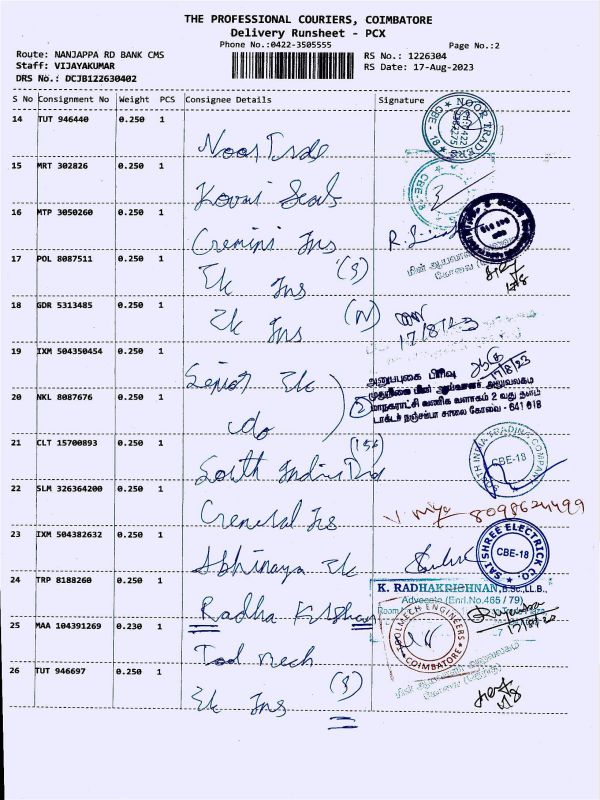 THE PROFESSIONAL COURIERS, COIMBATORE
Delivery Runsheet - PCX
Phone No.:0422-3505555 Page No.:2
Route: NANJAPPA RD BANK CMS RS No.: 1226304
Staff: VIJAYAKUMAR RS Date: 17-Aug-2023
DRS No.: DCJB122630402
S No Consignment No Weight PCS Consignee Details Signature
14 TUT 946440 0.250 1
NOOR TRADERS
CBE - 18
15 MRT 302826 0.250 1
CBE-18
16 MTP 3050260 0.250 1
Gemini Ins
17 POL 8087511 0.250 1
Ek Ins (S)
17/8
18 GDR 5313485 0.250 1
Ek Ins (N)
17/8/23
19 IXM 504350454 0.250 1
Senior Ek
17/8/23
அனுப்புகை பிரிவு
20 NKL 8087676 0.250 1
do (2)
டாக்டர் நஞ்சப்பா சாலை கோவை - 641 018
21 CLT 15700893 0.250 1
(156)
South India Trd
SOUTH INDIA TRADING COMPANY
CBE-18
22 SLM 326364200 0.250 1
General Ins
8098624499
23 IXM 504382632 0.250 1
Abhinaya Ek
SAI SHREE ELECTRICK CO.
CBE-18
24 TRP 8188260 0.250 1
K. RADHAKRISHNAN, B.Sc., LL.B.,
Advocate (Enrl.No.465 / 79)
Radha Krishnan
25 MAA 104391269 0.230 1
TOOLMECH ENGINEERS
COIMBATORE
Tool mech
26 TUT 946697 0.250 1
Ek Ins (S)